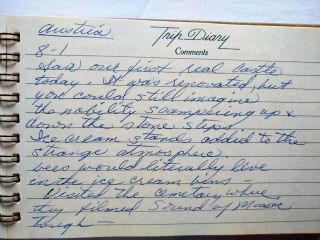 Austria
Trip Diary
Comments
8-1
Saw our first real castle
today. It was renovated, but
you could still imagine
the nobility scampering up &
down the stone steps.
Ice cream stands added to the
strange atmosphere.
bees would literally live
in the ice cream bins
Visited the cemetary where
they filmed Sound of Music
tough —